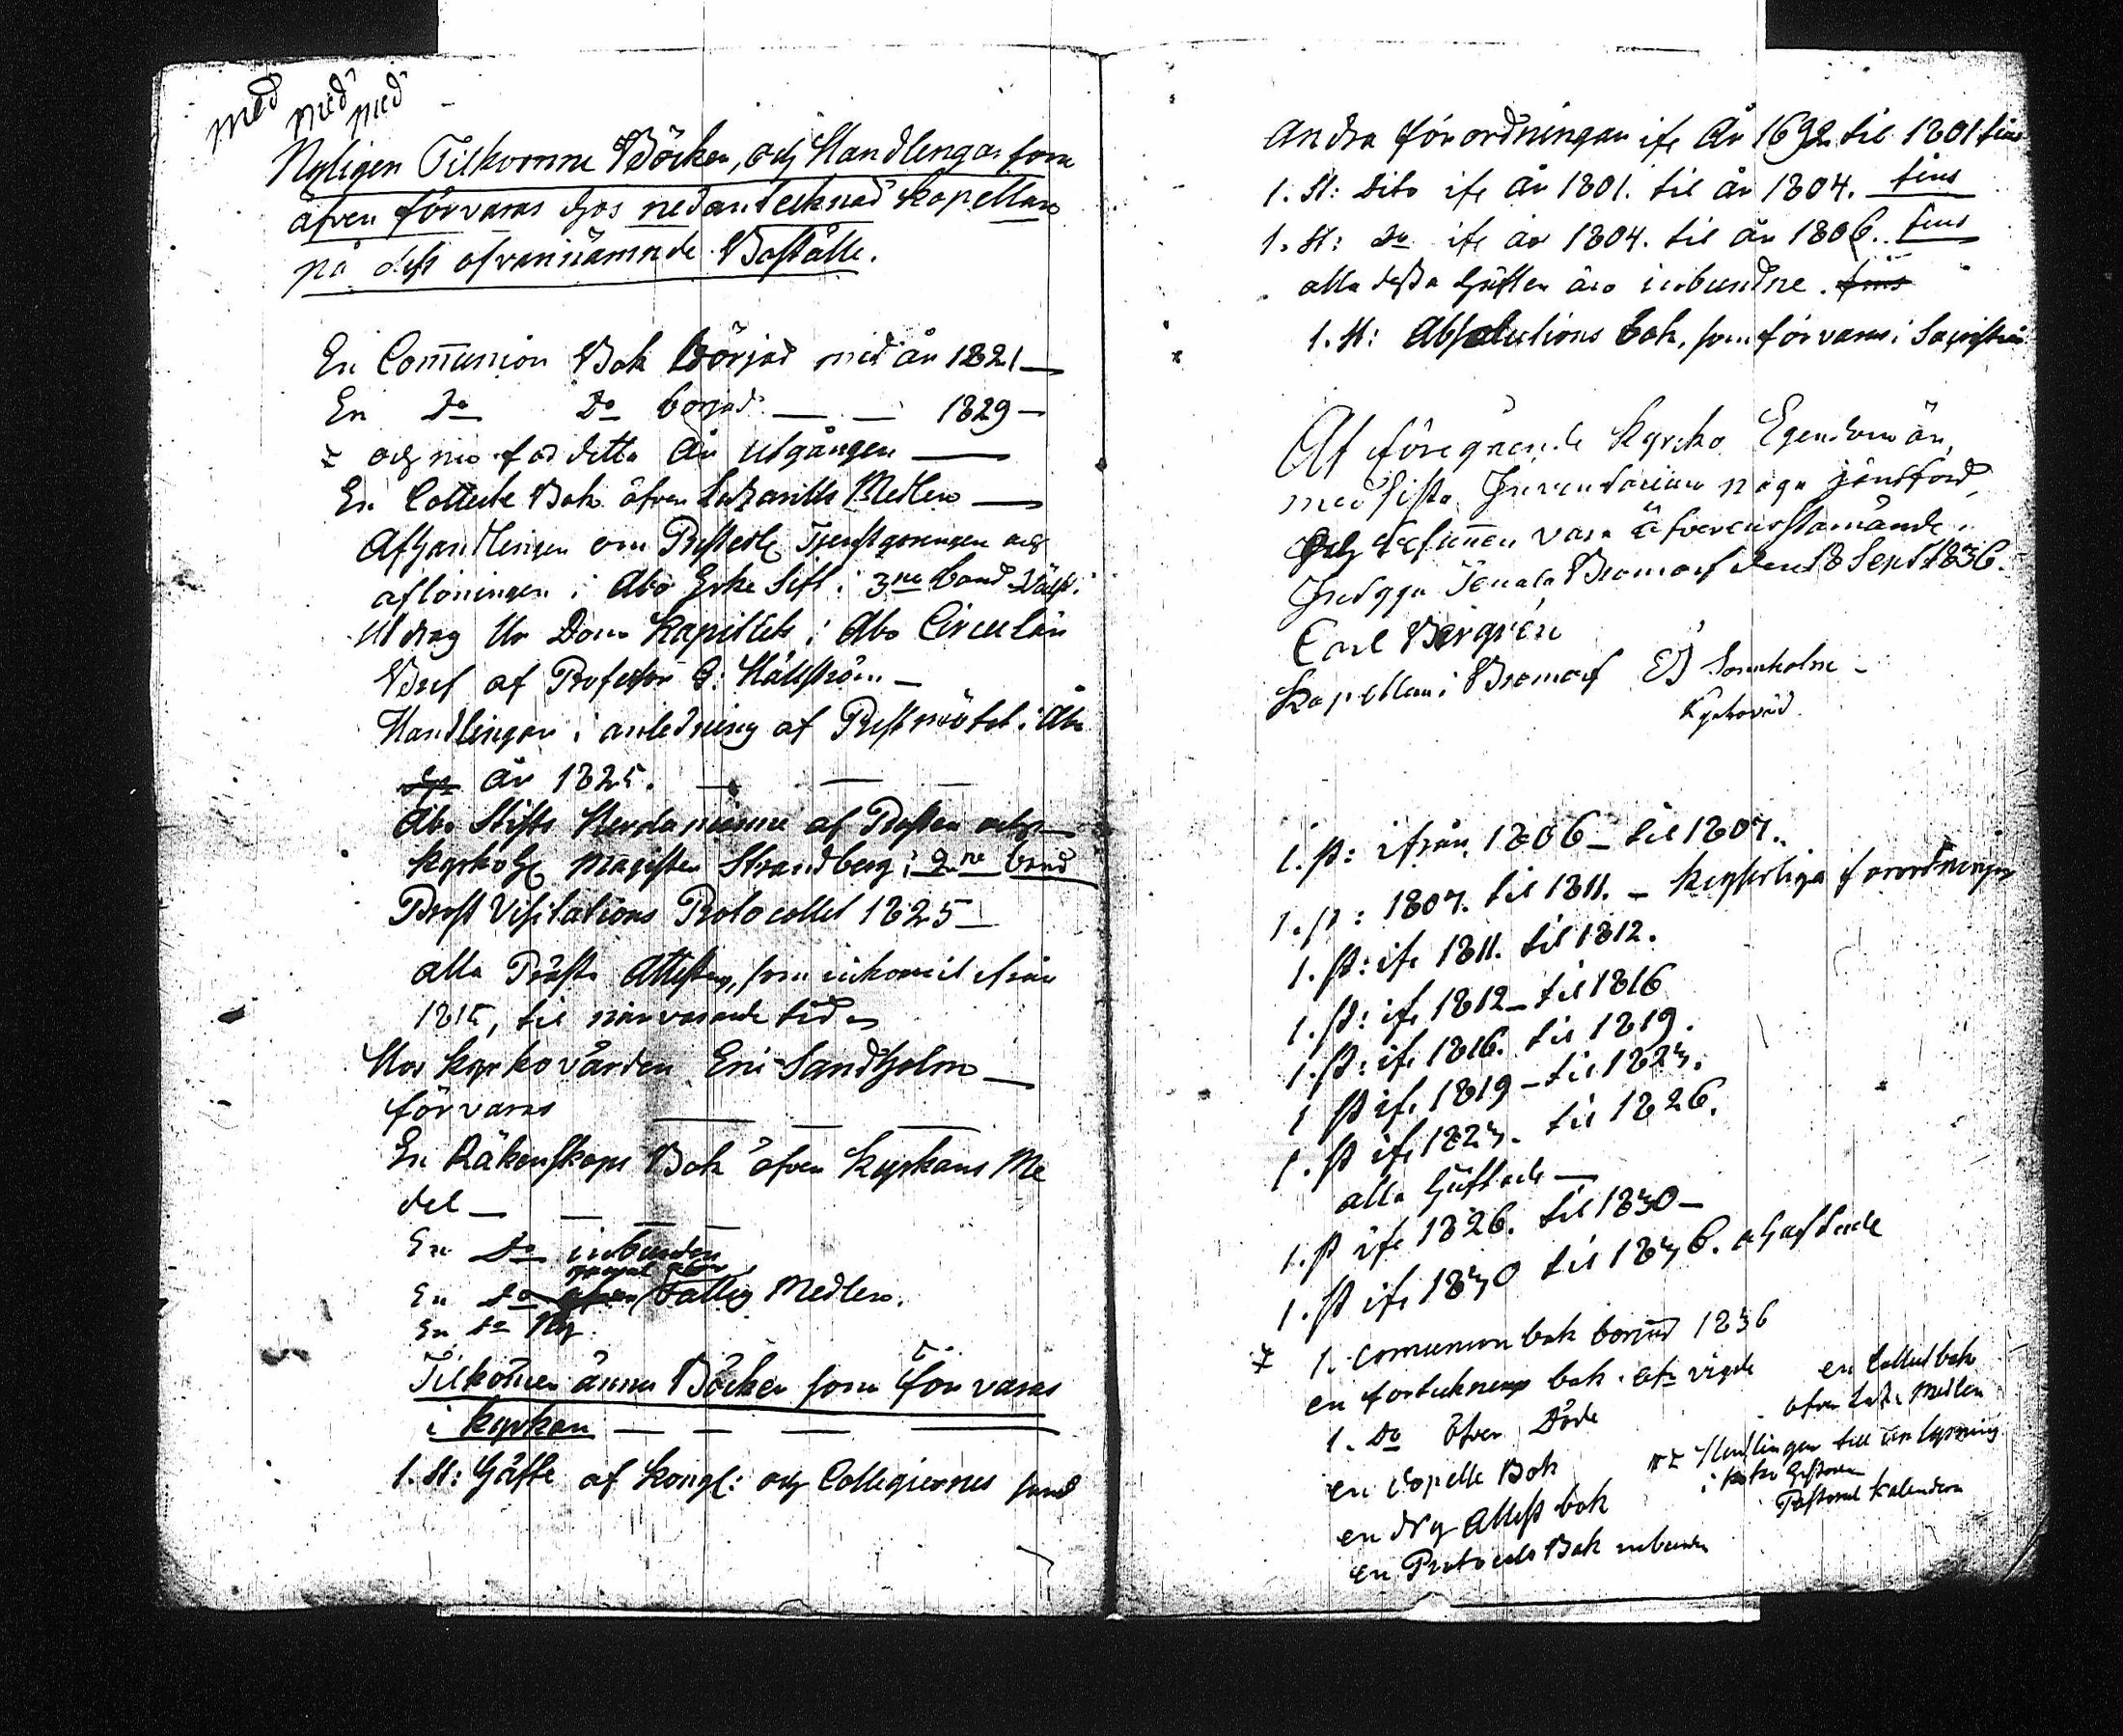 med med med
Nyligen Tilkomne Böcker, och Handlingar som
äfven förvaras hos nedantecknad Kapellan
på dess ofvannämnde Boställe.
En Com̄union Bok Börjad med år 1821 —
En Do Do börjad — — 1829 —
och med detta År utgången —
En Collecte Bok öfver Lazaretts Medlen —
Afhandlingen om Presterl: Tjenstgöringen och
aflöningen i Åbo Erke Stift i 3ne band
Utdrag Ur Dom Kapitlets i Åbo Circulär
Bref af Professor G: Hällström —
Handlingar i anledning af Prestmötet i Åbo
år 1825. — — —
Åbo Stifts Herdaminne af Prosten och
Kyrkoh: Magister Strandberg i 2ne band
Prost Visitations Protocollet 1825 —
alla Präste Attester, som inkommit ifrån
1815, til närvarande tid
Hos Kyrkovärden Eric Sandholm —
förvaras — — —
En Räkenskaps Bok öfver Kyrkans Me
del — — — —
En Do inbunden
En Do Fattig Medlen.
En Do Ny
Tilkom̄er ännu Böcker som förvaras
i Kyrkan — — — —
1. St: Häfte af Kongl: och Collegiernes samt
Andra förordningar ifr År 1692 til 1801 fins
1. St: Dito ifr år 1801. til år 1804. fins
1. St: Do ifr år 1804. til år 1806. fins
alla dessa Häften äro inbundne. fins
1. St: Absolutions bok, som förvaras i Sacristian
At föregående Kyrko Egendom är,
med sista Inventarium noga jämförd,
och befun̄en vara öfverensstämmande.
Intyga Tenala Bromarf den 18 Sept 1836.
Carl Bergrén
Kapellan i Bromarf ES Sannholm
Kyrkovärd
1. st: ifrån 1806 — til 1807.
1. st: 1807. til 1811. — Kejserliga förordningar
1. st: ifr 1811. til 1812.
1. st: ifr 1812 — til 1816
1. st: ifr 1816. til 1819.
1 st ifr 1819 — til 1823.
1. st ifr 1823. til 1826.
alla häftade —
1. st ifr 1826. til 1830 —
1. st ifr 1830 til 1836. ohäftade
1. Comunion bok börjad 1836
en förtecknings bok öfr vigde
1. Do öfver Döde
en Capelle Bok
en Ny Attest bok
en Protocols Bok inbunden
en Collect bok
öfver Laz. Medlen
Handlingar till uplysning
i Historien
Pastoral Kalendern